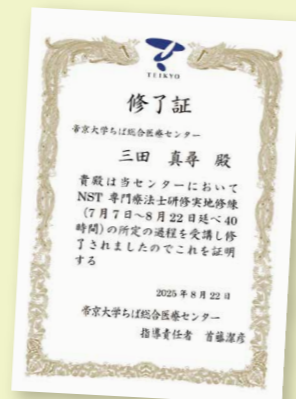 TEIKYO
修了証
帝京大学ちば総合医療センター
三田 真尋 殿
貴殿は当センターにおいて
NST 専門療法士研修実地修練
(7月7日〜8月22日延べ40
時間)の所定の過程を受講し修
了されましたのでこれを証明
する
2025年8月22日
帝京大学ちば総合医療センター
指導責任者 首藤潔彦